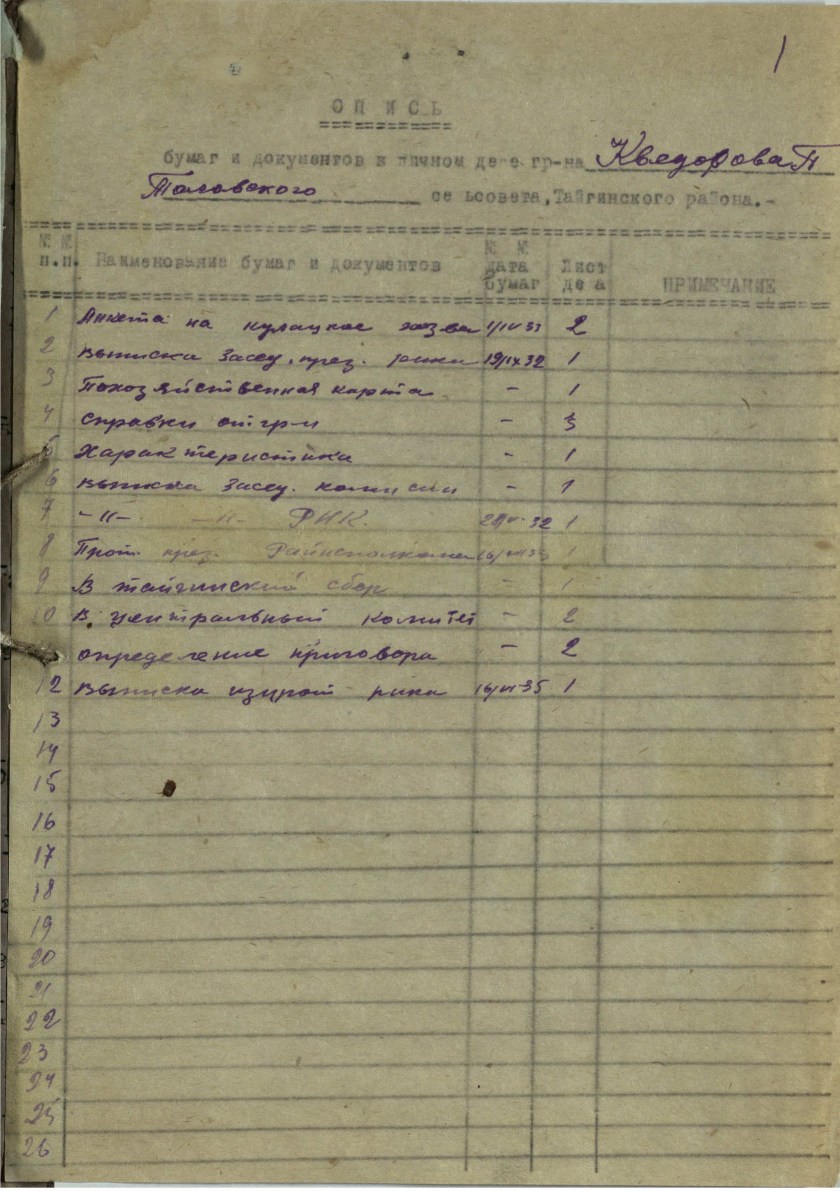 1
ОПИСЬ
бумаг и документов в личном деле гр-на Кведорова П
Таловского се ьсовета, Тайгинского района.-
№ № п.п. Наименование бумаг и документов № № дата бумаг Лист де а ПРИМЕЧАНИЕ
1 Анкета на кулацкое хоз-ва 2
2 Выписка засед. през. рика 19/IX 32 1
3 Похозяйственная карта - 1
4 Справки от гр-н - 3
5 Характеристика - 1
6 Выписка засед. комиссии - 1
7 -"- -"- РИК. 32 1
8 Прот. през. Райисполкома 1
9 В тайгинский сбор - 1
10 В. центральный комитет - 2
определение приговора - 2
12 Выписка из прот рика 16/VI-35 1
13
14
15
16
17
18
19
20
21
22
23
24
25
26